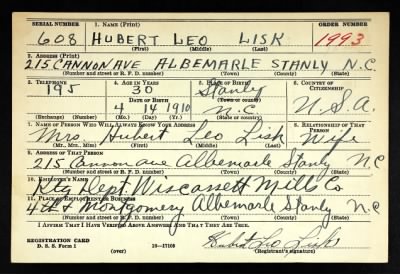 SERIAL NUMBER 1. NAME (Print) ORDER NUMBER
608 HUBERT LEO LISK 1993
(First) (Middle) (Last)
2. ADDRESS (Print)
215 CANNON AVE ALBEMARLE STANLY N.C.
(Number and street or R. F. D. number) (Town) (County) (State)
3. TELEPHONE 4. AGE IN YEARS 5. PLACE OF BIRTH 6. COUNTRY OF CITIZENSHIP
195 30 Stanly
DATE OF BIRTH (Town or county)
4 14 1910 N.C U.S.A.
(Exchange) (Number) (Mo.) (Day) (Yr.) (State or country)
7. NAME OF PERSON WHO WILL ALWAYS KNOW YOUR ADDRESS 8. RELATIONSHIP OF THAT PERSON
Mrs Hubert Leo Lisk Wife
(Mr., Mrs., Miss) (First) (Middle) (Last)
9. ADDRESS OF THAT PERSON
215 Cannon ave Albemarle Stanly N C
(Number and street or R. F. D. number) (Town) (County) (State)
10. EMPLOYER'S NAME
Ktg Dept. Wiscassett Mills Co
11. PLACE OF EMPLOYMENT OR BUSINESS
4th & Montgomery Albemarle Stanly N.C
(Number and street or R. F. D. number) (Town) (County) (State)
I AFFIRM THAT I HAVE VERIFIED ABOVE ANSWERS AND THAT THEY ARE TRUE.
REGISTRATION CARD
D. S. S. Form 1 (over) 16-17105 Hubert Leo Lisk
(Registrant's signature)